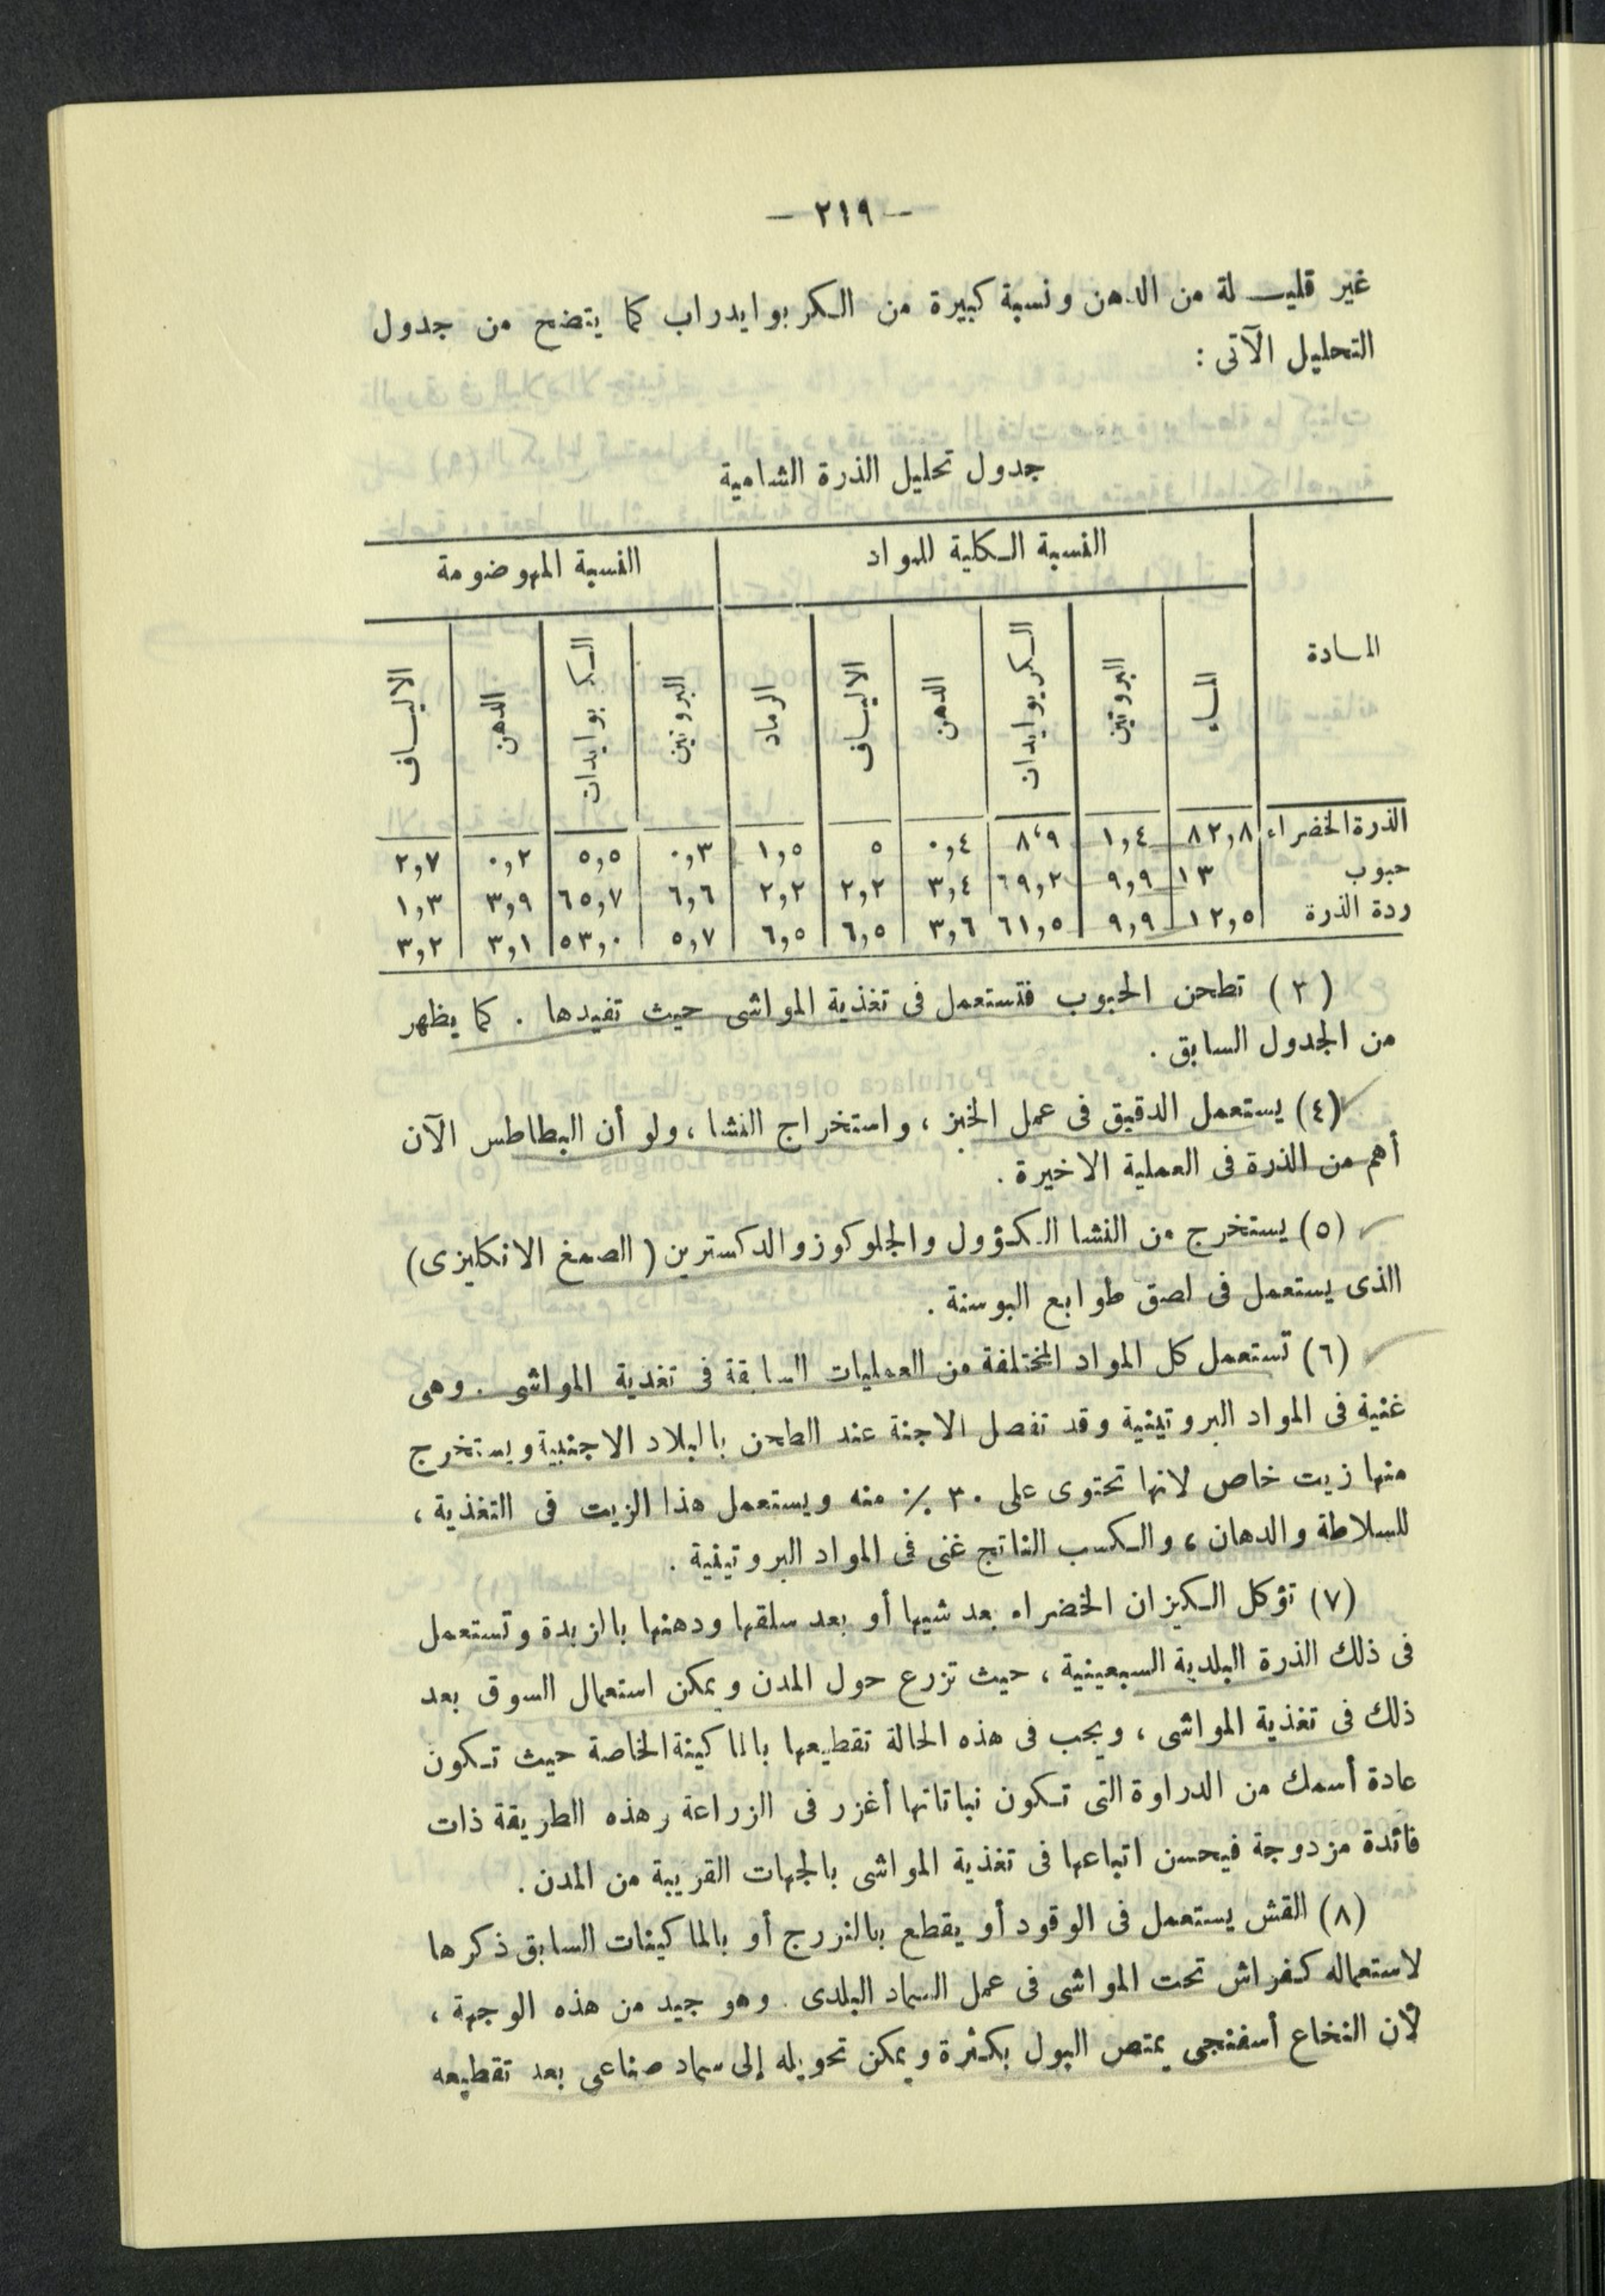 — ٢١٩ —
غير قليلة من الدهن ونسبة كبيرة من الكربوايدراب كما يتضح من جدول
التحليل الآتى :
جدول تحليل الذرة الشامية
المادة النسبة الكلية للمواد النسبة المهوضومة
الماء البروتين الكربوايدان الدهن الالياف الرماد البروتين الكربوايدات الدهن الالياف
الذرة الخضراء ٨٢,٨ ١,٤ ٨،٩ ٠,٤ ٥ ١,٥ ٠,٣ ٥,٥ ٠,٢ ٢,٧
حبوب ١٣ ٩,٩ ٦٩,٢ ٣,٤ ٢,٢ ٢,٢ ٦,٦ ٦٥,٧ ٣,٩ ١,٣
ردة الذرة ١٢,٥ ٩,٩ ٦١,٥ ٣,٦ ٦,٥ ٦,٥ ٥,٧ ٥٣,٠ ٣,١ ٣,٢
(٣) تطحن الحبوب فتستعمل فى تغذية المواشى حيث تفيدها . كما يظهر
من الجدول السابق .
(٤) يستعمل الدقيق فى عمل الخبز ، واستخراج النشا ، ولو أن البطاطس الآن
أهم من الذرة فى العملية الاخيرة .
(٥) يستخرج من النشا الكؤول والجلوكوز والدكسترين ( الصمغ الانكليزى )
الذى يستعمل فى لصق طوابع البوستة .
(٦) تستعمل كل المواد المختلفة من العمليات السابقة فى تغذية المواشى . وهى
غنية فى المواد البروتينية وقد تفصل الاجنة عند الطحن بالبلاد الاجنبية ويستخرج
منها زيت خاص لانها تحتوى على ٣٠ ٪ منه ويستعمل هذا الزيت فى التغذية ،
للسلاطة والدهان ، والكسب الناتج غنى فى المواد البروتينية .
(٧) تؤكل الكيزان الخضراء بعد شيها أو بعد سلقها ودهنها بالزبدة وتستعمل
فى ذلك الذرة البلدية السبعينية ، حيث تزرع حول المدن ويمكن استعمال السوق بعد
ذلك فى تغذية المواشى ، ويجب فى هذه الحالة تقطيعها بالماكينة الخاصة حيث تكون
عادة أسمك من الدراوة التى تكون نباتاتها أغزر فى الزراعة وهذه الطريقة ذات
فائدة مزدوجة فيحسن اتباعها فى تغذية المواشى بالجهات القريبة من المدن .
(٨) القش يستعمل فى الوقود أو يقطع بالنورج أو بالماكينات السابق ذكرها
لاستعماله كفراش تحت المواشى فى عمل السماد البلدى . وهو جيد من هذه الوجهة ،
لأن النخاع أسفنجى يمتص البول بكثرة ويمكن تحويله إلى سماد صناعى بعد تقطيعه